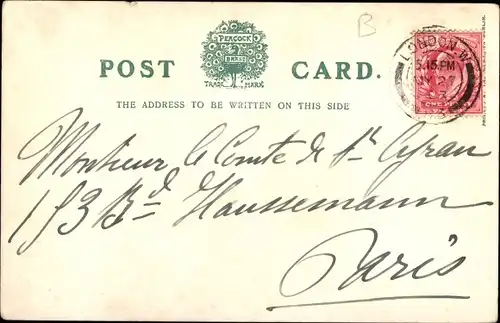 B
PEACOCK
BRAND
TRADE MARK
POST CARD.
THE ADDRESS TO BE WRITTEN ON THIS SIDE
LONDON. W
5.15 PM
Monsieur le Comte de St Cyran
153 Bd Haussemann
Paris